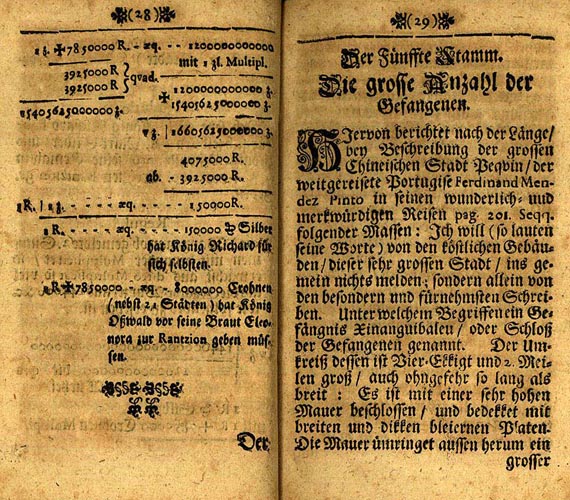 (28)
1 ʒ. ✠ 7850000 R. - æq. - - 12000000000000
mit 1 ʒl. Multipl.
3925000 R.
3925000 R. } Quad.
✠ 12000000000000
15405625000000
15405625000000 ʒ.
√ ʒ. | 16605625000000
4075000 R.
ab. - 3925000 R.
1 R. | 1 ʒ. - - - æq. - - - - 150000 R.
1 R. - - - - æq. - - - - 150000 ℔ Silber
hat König Richard für
sich selbsten.
1 R ✠ 7850000 - - æq. - 8000000 Crohnen
(nebst 21 Städten) hat König
Oßwald vor seine Braut Eleo-
nora zur Rantzion geben müs-
sen.
Der
(29)
Der Fünffte Stamm.
Die grosse Anzahl der
Gefangenen.
HIervon berichtet nach der Länge/
bey Beschreibung der grossen
Chineischen Stadt Peqvin/ der
weitgereisete Portugise Ferdinand Men-
dez Pinto in seinen wunderlich- und
merkwürdigen Reisen pag. 201. Seqq.
folgender Massen: Ich will (so lauten
seine Worte) von den köstlichen Gebäu-
den/ dieser sehr grossen Stadt/ ins ge-
mein nichts melden; sondern allein von
den besondern und fürnehmsten Schrei-
ben. Unter welchem Begriffen ein Ge-
fängnis Xinanguibalen/ oder Schloß
der Gefangenen genannt. Der Um-
kreiß dessen ist Vier-Ekkigt und 2. Mei-
len groß/ auch ohngefehr so lang als
breit: Es ist mit einer sehr hohen
Mauer beschlossen/ und bedekket mit
breiten und dikken bleiernen Platen.
Die Mauer ümringet aussen herum ein
grosser